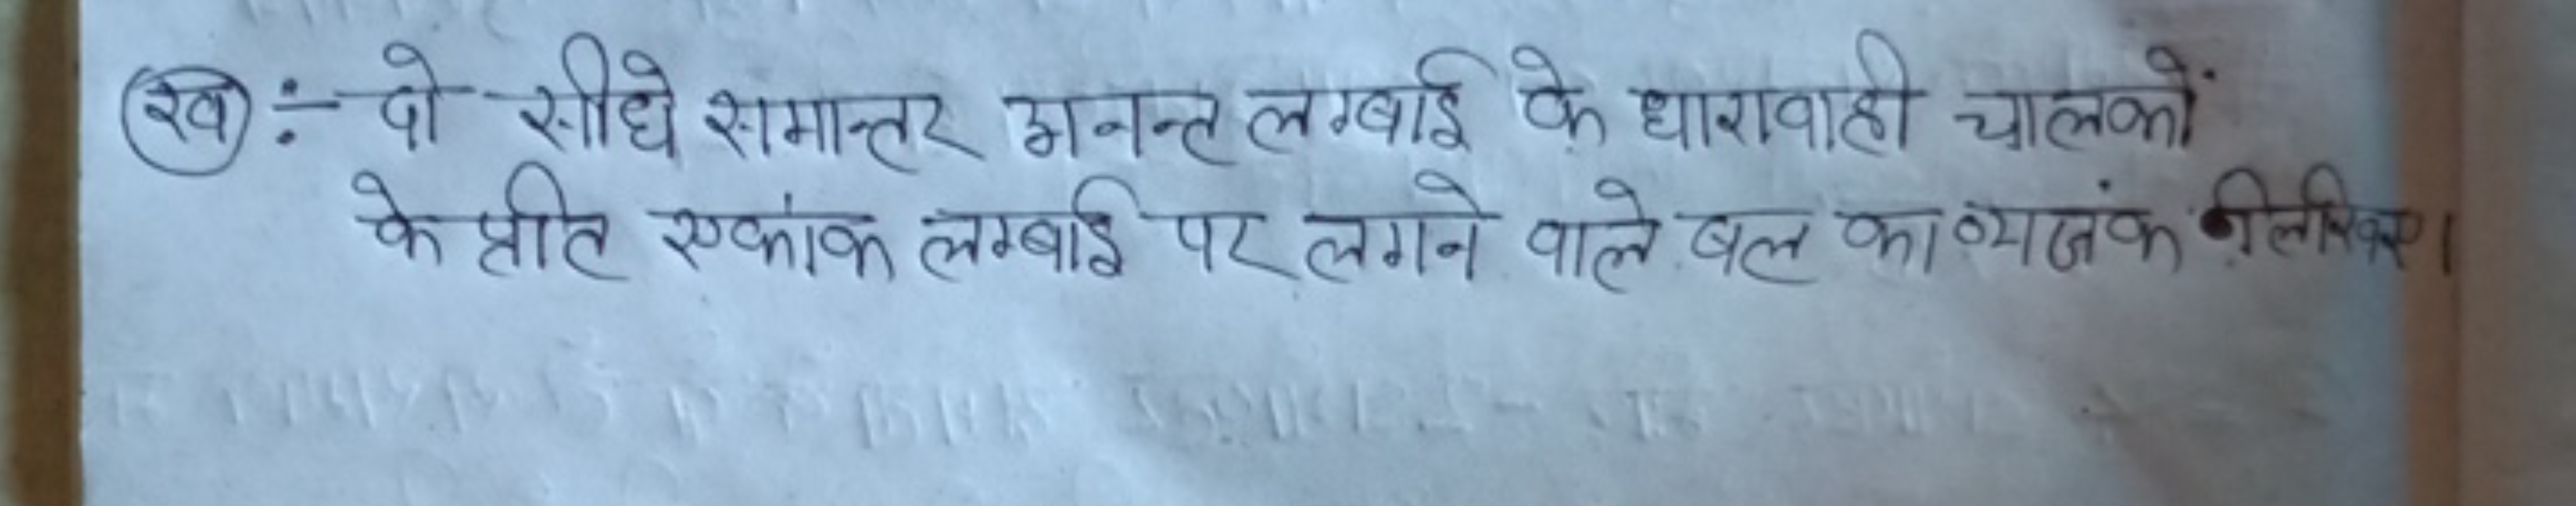 (ख) :- दो सीधे समान्तर अनन्त लम्बाई के धारावाही चालकों
के प्रति एकांक लम्बाई पर लगने वाले बल का व्यजंक लिखिए।